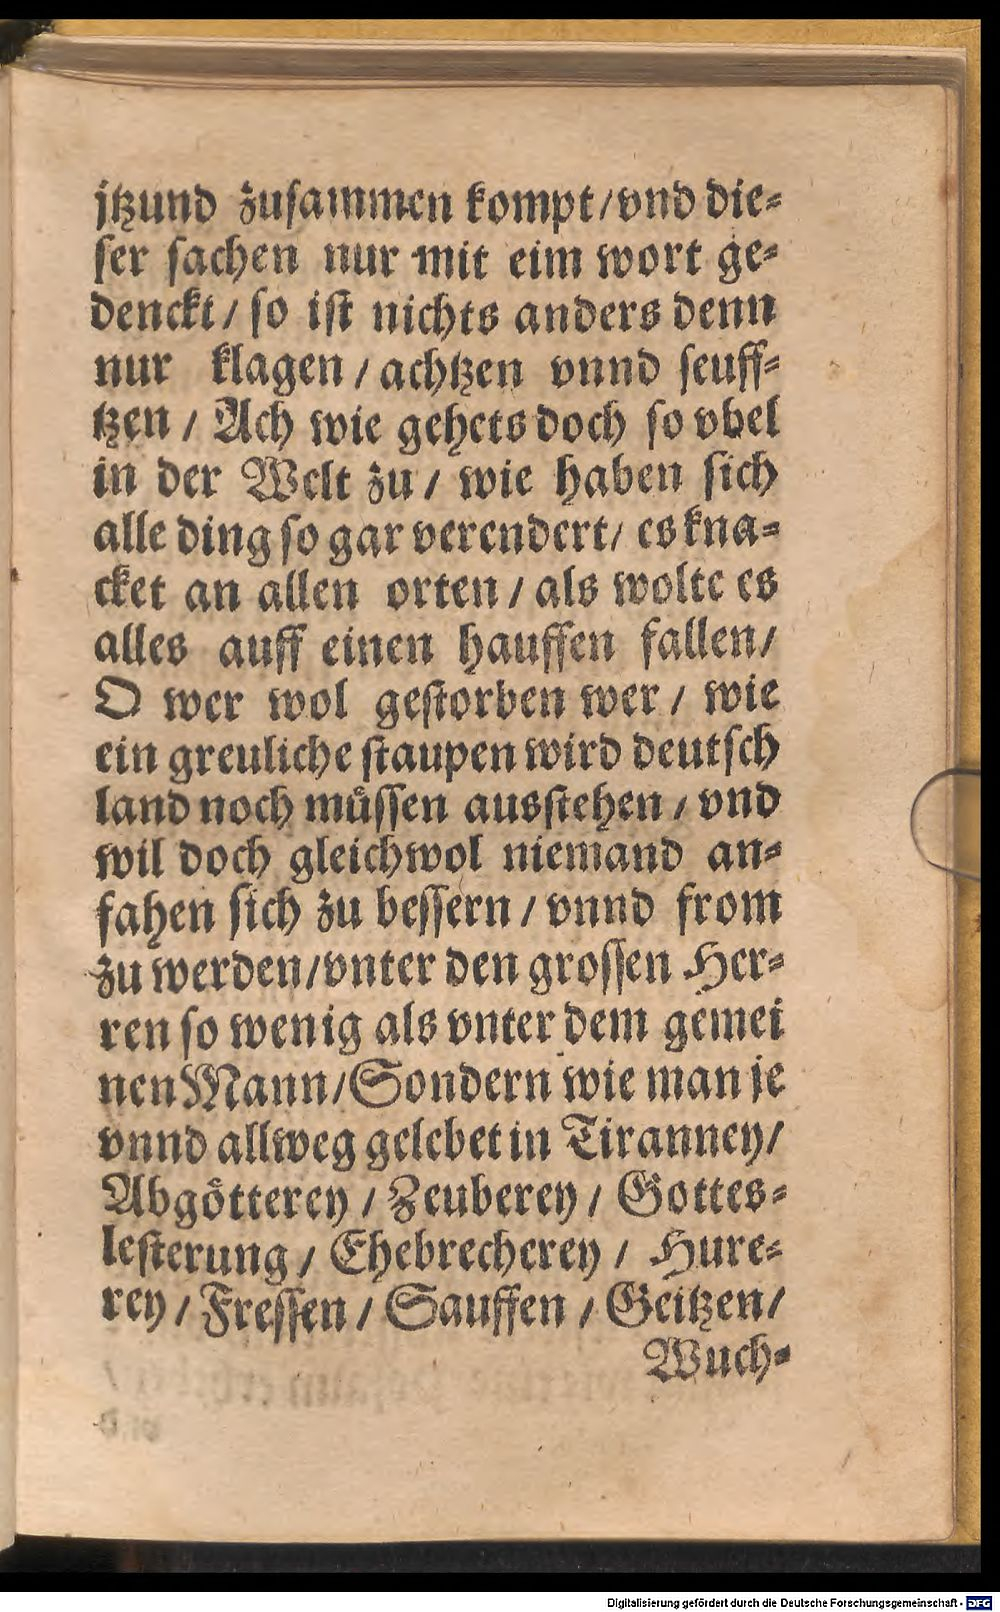 jtzund zusammen kompt/vnd die-
ser sachen nur mit eim wort ge-
denckt/ so ist nichts anders denn
nur klagen/ achtzen vnnd seuff-
tzen/ Ach wie gehets doch so vbel
in der Welt zu/ wie haben sich
alle ding so gar verendert/ es kna-
cket an allen orten/ als wolte es
alles auff einen hauffen fallen/
O wer wol gestorben wer/ wie
ein greuliche staupen wird deutsch
land noch müssen ausstehen/ vnd
wil doch gleichwol niemand an-
fahen sich zu bessern/ vnnd from
zu werden/vnter den grossen Her-
ren so wenig als vnter dem gemei
nen Mann/Sondern wie man je
vnnd allweg gelebet in Tiranney/
Abgötterey/ Zeuberey/ Gottes-
lesterung/ Ehebrecherey/ Hure-
rey/ Fressen/ Sauffen/ Geitzen/
Wuch-
Digitalisierung gefördert durch die Deutsche Forschungsgemeinschaft - DFG